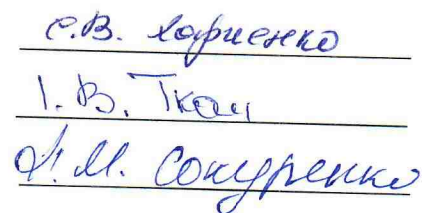 С.В. Лариенко
І. В. Ткач
Л. М. Сокуренко